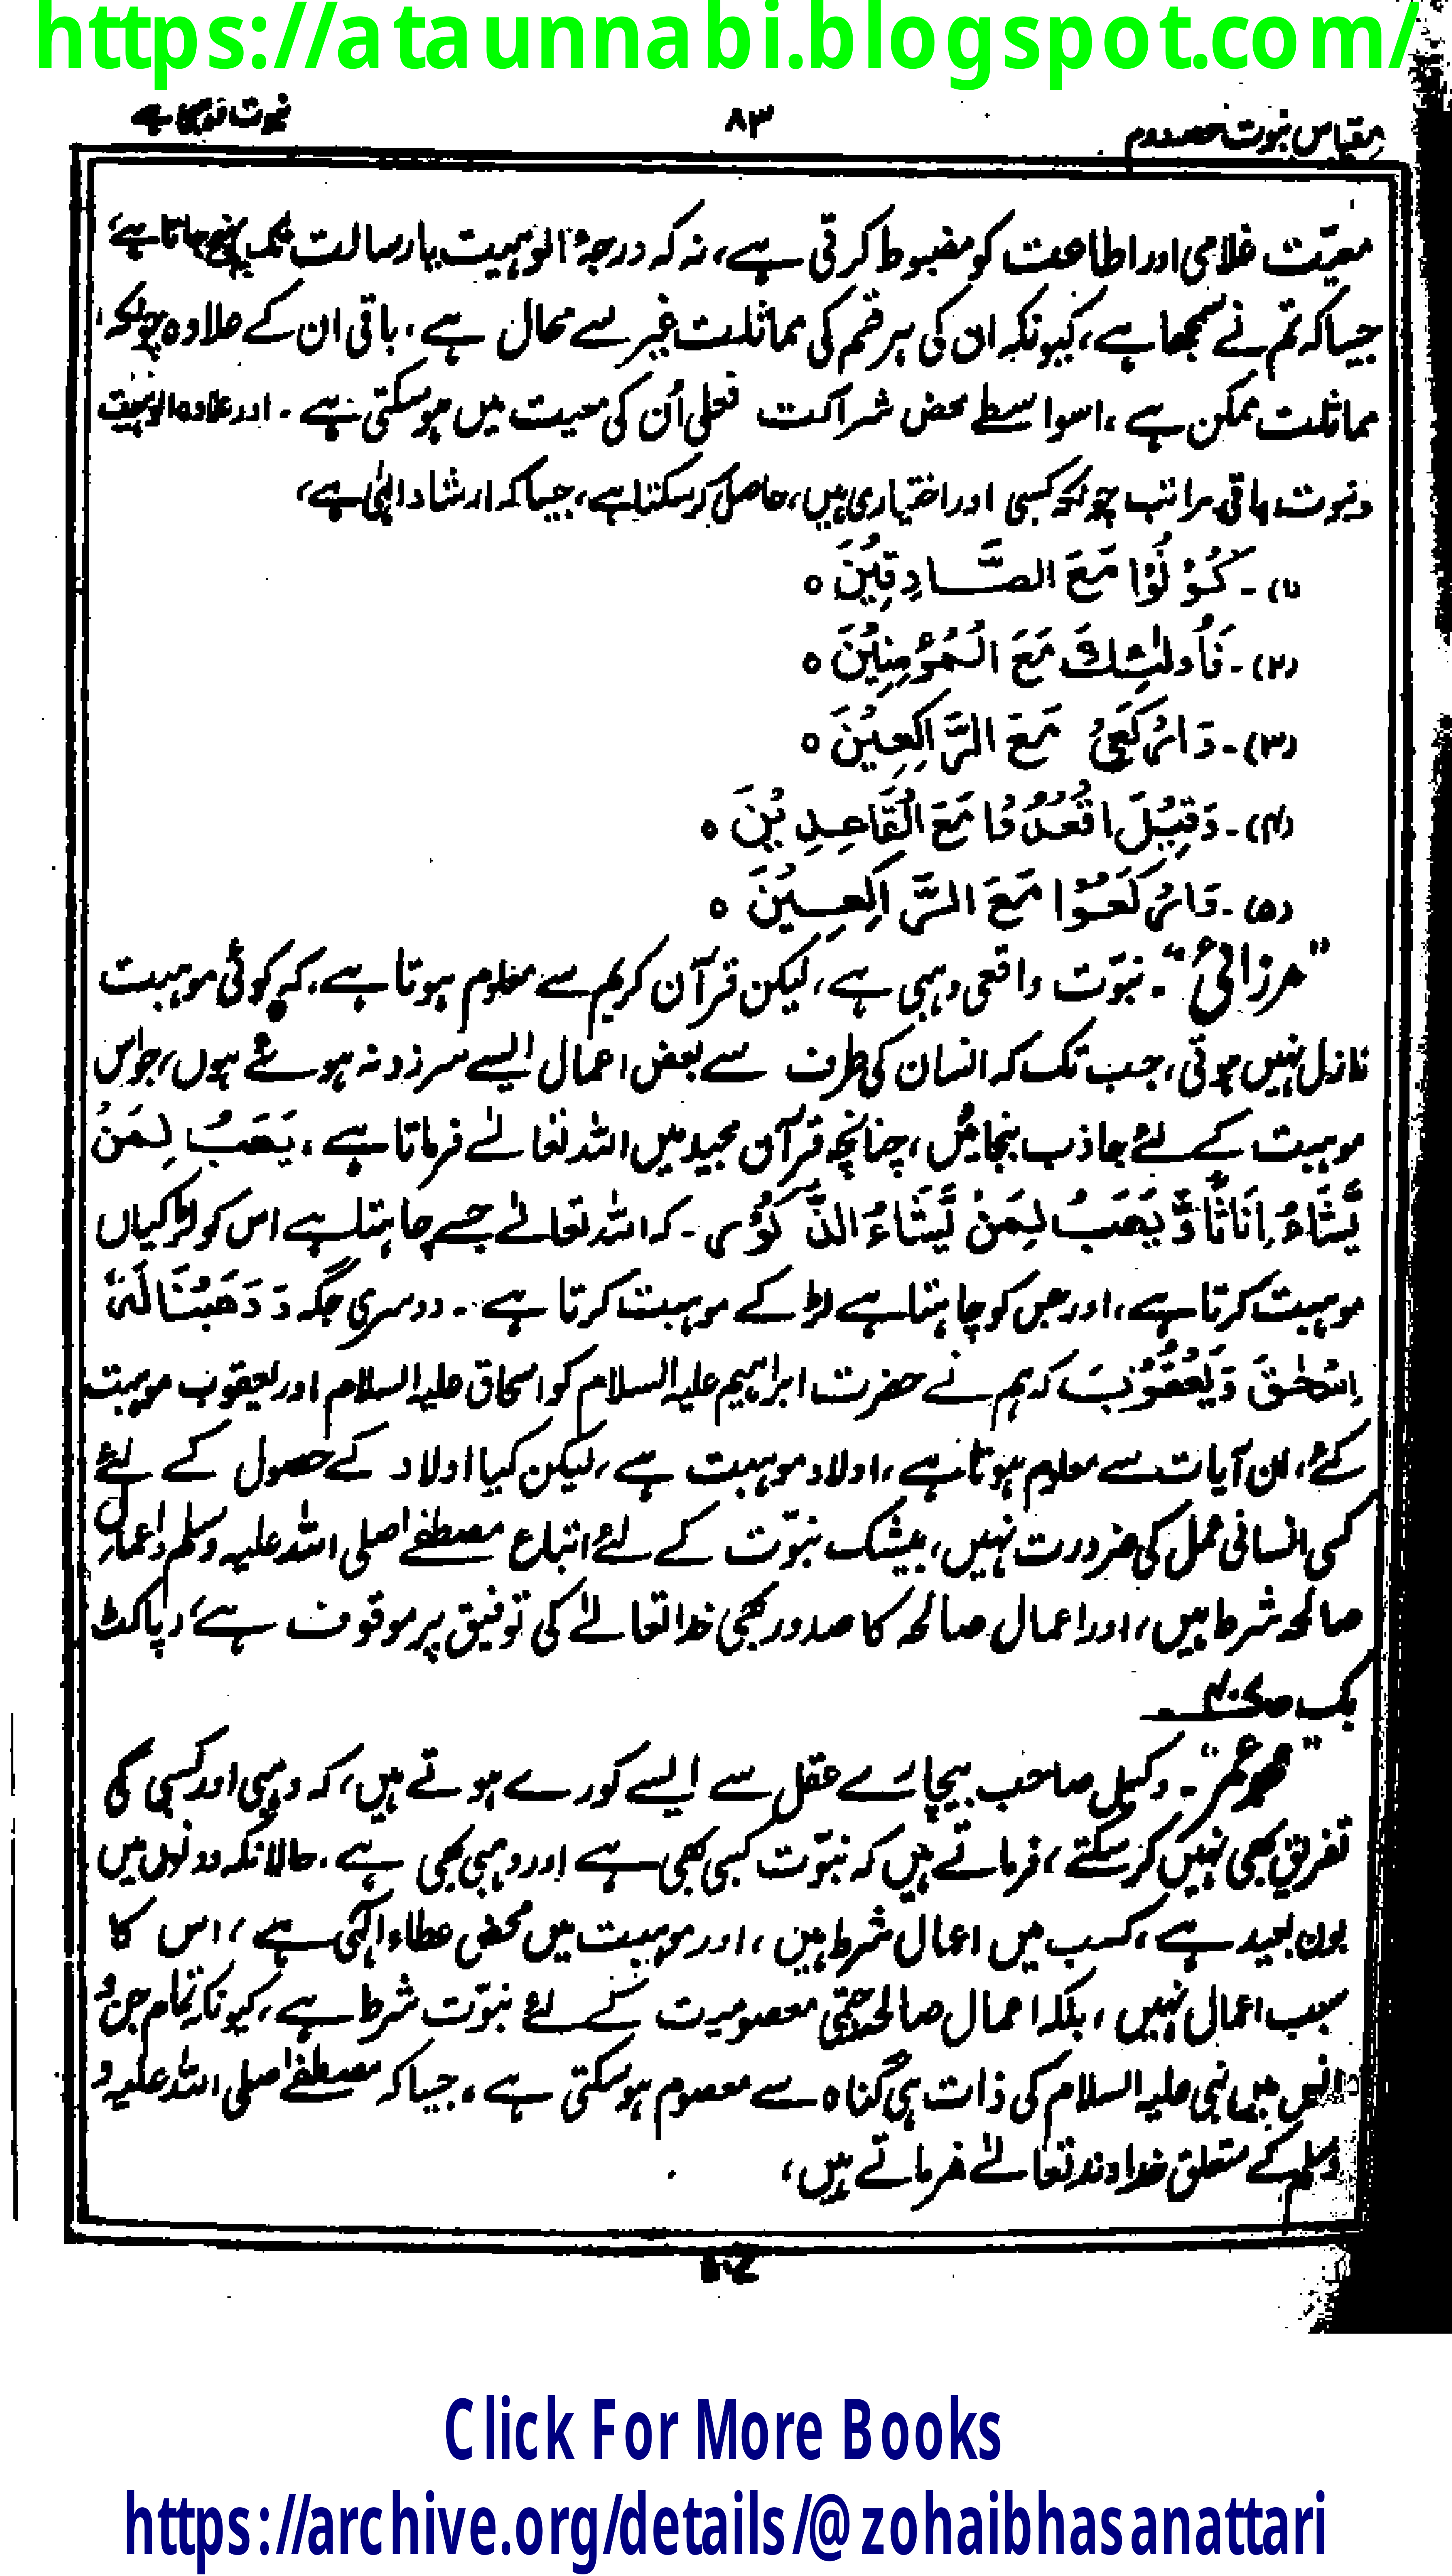 https://ataunnabi.blogspot.com/
مقیاس نبوت حصہ دوم
۸۳
نبوت
معیّت غلامی اور اطاعت کو مضبوط کرتی ہے، نہ کہ درجۂ الوہیت یا رسالت تک پہنچ جاتا ہے،
جیسا کہ تم نے سمجھا ہے، کیونکہ ان کی ہر قسم کی مماثلت غیر سے محال ہے، باقی ان کے علاوہ چونکہ
مماثلت ممکن ہے، اسواسطے محض شراکت فعلی اُن کی معیت میں ہو سکتی ہے۔ اور علاوہ الوہیت
و نبوت باقی مراتب چونکہ کسبی اور اختیاری ہیں، حاصل کر سکتا ہے، جیسا کہ ارشاد الٰہی ہے،
(۱)۔ کُوْنُوْا مَعَ الصَّادِقِیْنَ ۝
(۲)۔ فَاُولٰئِکَ مَعَ الْمُؤْمِنِیْنَ ۝
(۳)۔ وَارْکَعِیْ مَعَ الرَّاکِعِیْنَ ۝
(۴)۔ وَقِیْلَ اقْعُدُوْا مَعَ الْقَاعِدِیْنَ ۝
(۵)۔ وَارْکَعُوْا مَعَ الرَّاکِعِیْنَ ۝
"مرزائی"۔ نبوّت واقعی وہبی ہے، لیکن قرآن کریم سے معلوم ہوتا ہے، کہ کوئی موہبت
نازل نہیں ہوتی، جب تک کہ انسان کی طرف سے بعض اعمال ایسے سرزد نہ ہوئے ہوں، جو اس
موہبت کے لئے جاذب بنجائیں، چنانچہ قرآن مجید میں اللہ تعالےٰ فرماتا ہے، یَھَبُ لِمَنْ
یَّشَاءُ اِنَاثًا وَّ یَھَبُ لِمَنْ یَّشَاءُ الذُّکُوْرَ۔ کہ اللہ تعالےٰ جسے چاہتا ہے اس کو لڑکیاں
موہبت کرتا ہے، اور جس کو چاہتا ہے لڑکے موہبت کرتا ہے۔ دوسری جگہ وَ وَھَبْنَا لَہٗ
اِسْحٰقَ وَ یَعْقُوْبَ کہ ہم نے حضرت ابراہیم علیہ السلام کو اسحاق علیہ السلام اور یعقوب موہبت
کئے، ان آیات سے معلوم ہوتا ہے، اولاد موہبت ہے، لیکن کیا اولاد کے حصول کے لئے
کسی انسانی عمل کی ضرورت نہیں، بیشک نبوّت کے لئے اتباع مصطفےٰ صلی اللہ علیہ وسلم و اعمالِ
صالحہ شرط ہیں، اور اعمال صالحہ کا صدور بھی خدا تعالےٰ کی توفیق پر موقوف ہے، (پاکٹ
بک
"محمد عمر"۔ وکیل صاحب بیچارے عقل سے ایسے کورے ہوتے ہیں، کہ وہبی اور کسبی کی
تفریق بھی نہیں کر سکتے، فرماتے ہیں کہ نبوّت کسبی بھی ہے اور وہبی بھی ہے، حالانکہ دونوں میں
بون بعید ہے، کسب میں اعمال شرط ہیں، اور موہبت میں محض عطاء الٰہی ہے، اس کا
سبب اعمال نہیں، بلکہ اعمال صالحہ حتمی معصومیت کے لئے نبوّت شرط ہے، کیونکہ تمام جن و
انس میں نبی علیہ السلام کی ذات ہی گناہ سے معصوم ہو سکتی ہے، جیسا کہ مصطفےٰ صلی اللہ علیہ و
وسلم کے متعلق خداوند تعالےٰ فرماتے ہیں،
Click For More Books
https://archive.org/details/@zohaibhasanattari